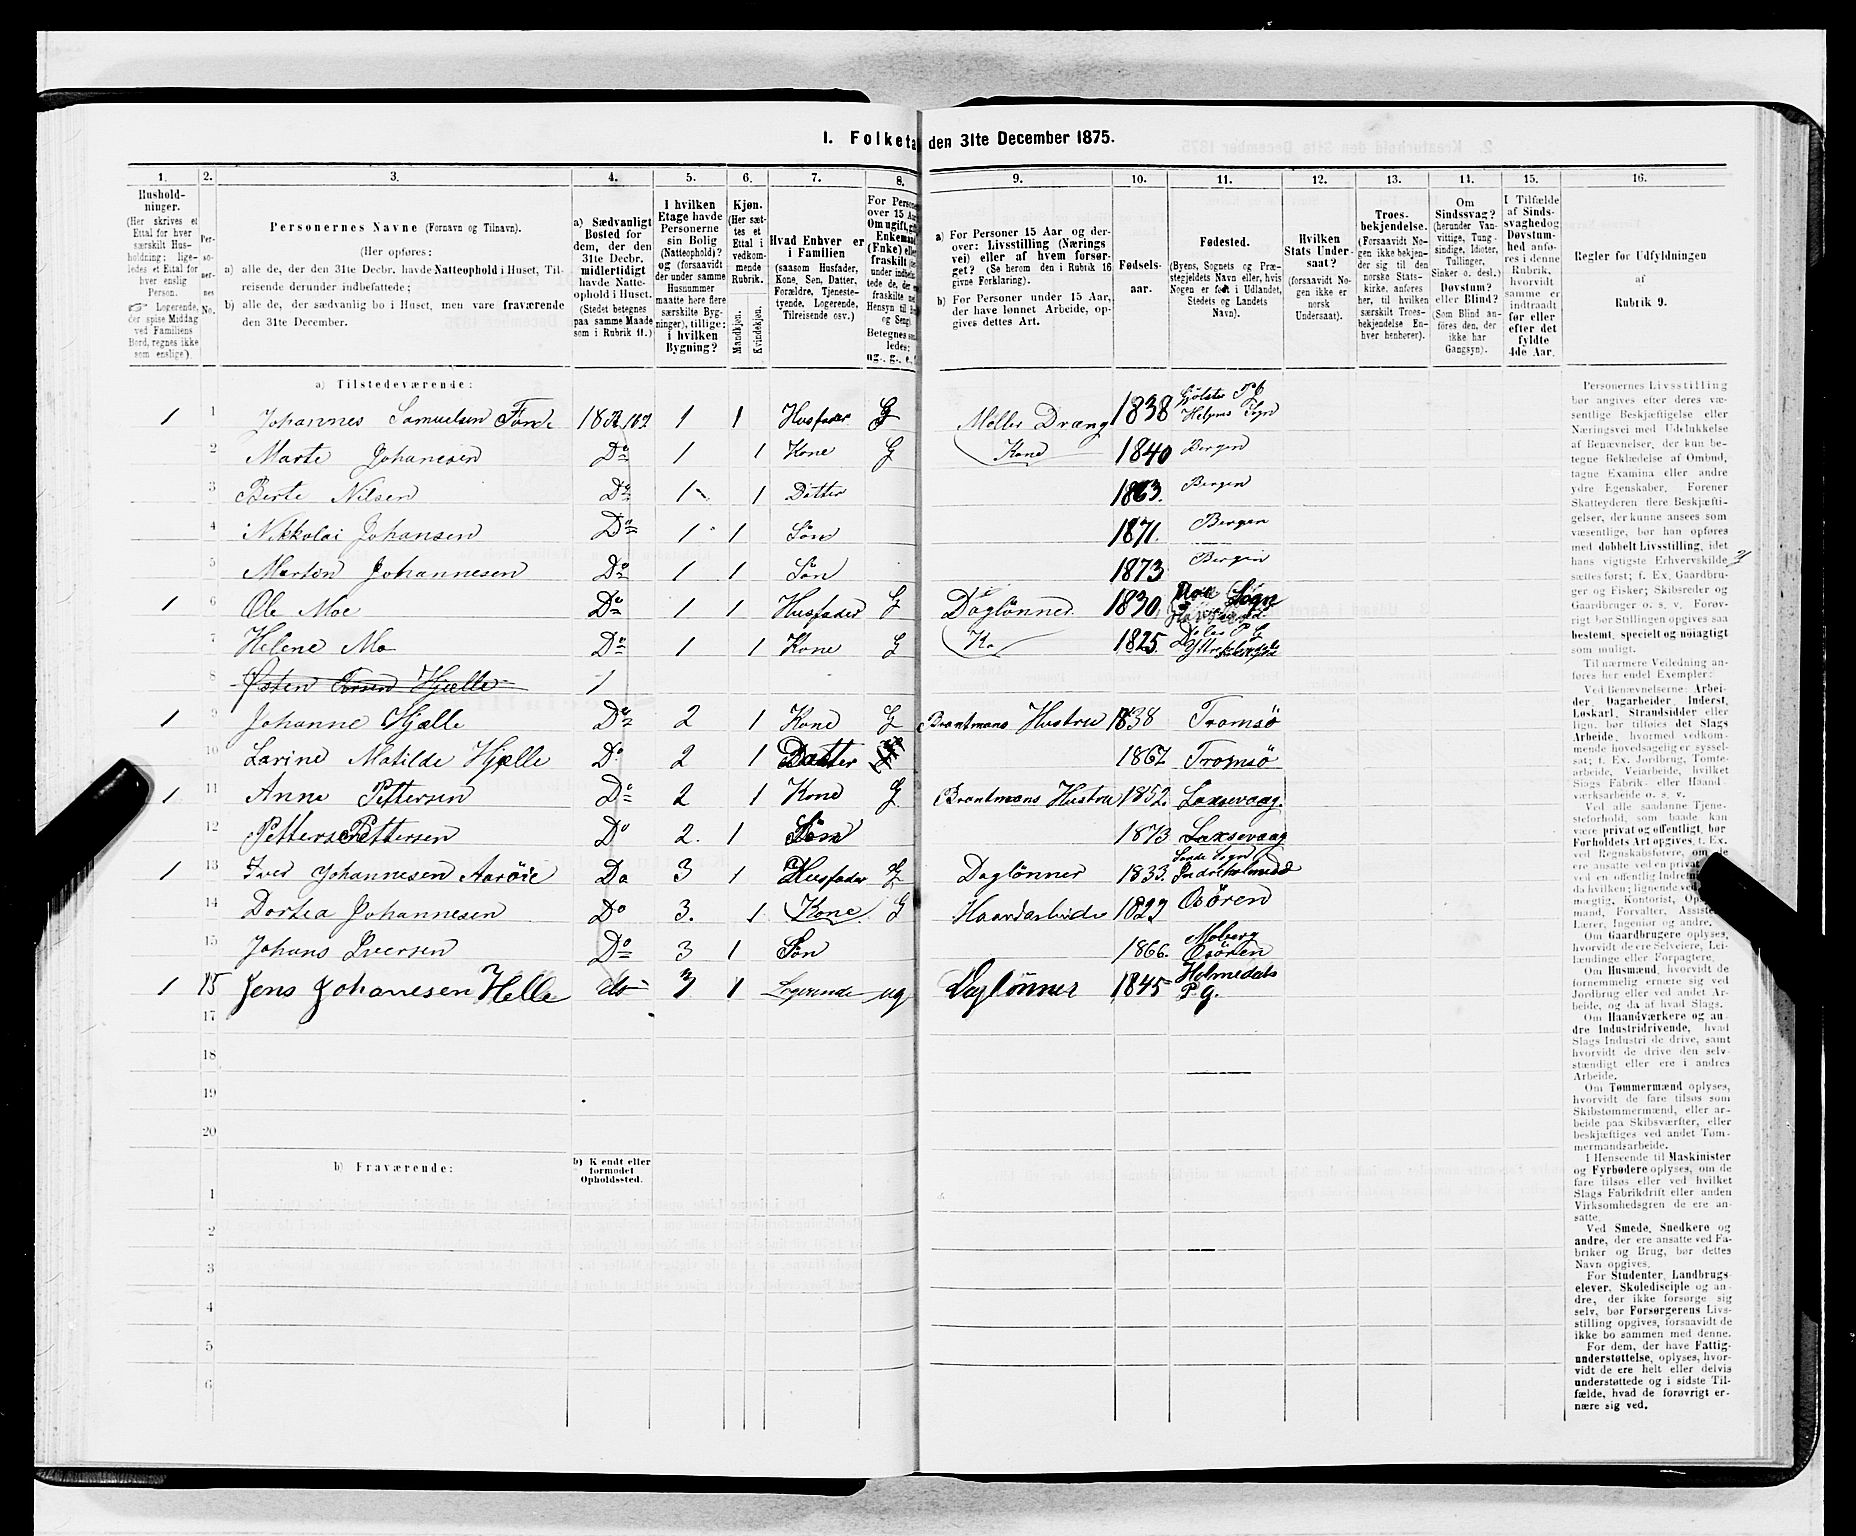 1. Folketa den 31te December 1875.
1. 2. 3. 4. 5. 6. 7. 8. 9. 10. 11. 12. 13. 14. 15. 16.
Hushold-
ninger.
(Her skrives et
Ettal for hver
særskilt Hus-
holdning; lige-
ledes et Ettal for
hver enslig
Person.
Logerende,
der spise Middag
ved Familiens
Bord, regnes ikke
som enslige).
Per-
so-
ner-
nes
No.
Personernes Navne (Fornavn og Tilnavn).
(Her opføres:
a) alle de, der den 31te Decbr. havde Natteophold i Huset, Til-
reisende derunder indbefattede;
b) alle de, der sædvanlig bo i Huset, men vare fraværende
den 31te December.
a) Sædvanligt
Bosted for
dem, der den
31te Decbr.
midlertidigt
havde Natte-
ophold i Huset.
(Stedet betegnes
paa samme Maade
som i Rubrik 11.)
I hvilken
Etage havde
Personerne
sin Bolig
(Natteophold)?
og (forsaavidt
der under samme
Husnummer
maatte høre flere
særskilte Byg-
ninger), tillige:
i hvilken
Bygning?
Kjøn.
(Her sæt-
tes et
Ettal i
vedkom-
mende
Rubrik.
Mandkjøn.
Kvindekjøn.
Hvad Enhver er
i Familien
(saasom Husfader,
Kone, Søn, Datter,
Forældre, Tjeneste-
tyende, Logerende,
Tilreisende osv.)
For Person
over 15 Aar
Om ugift, gift
Enkemand
(Enke) eller
fraskilt
a) For Personer 15 Aar og der-
over: Livsstilling (Nærings
vei) eller af hvem forsør-
get? (Se herom den i Rubrik 16
givne Forklaring).
b) For Personer under 15 Aar,
der have lønnet Arbeide, op-
gives dettes Art.
Fødsels-
aar.
Fødested.
(Byens, Sognets og Præ-
stegjeldets Navn eller, hvis
Nogen er født i Udlandet,
Stedets og Landets
Navn).
Hvilken
Stats Under-
saat?
(forsaavidt No-
gen ikke er
norsk
Undersaat).
Troes-
bekjendelse.
(Forsaavidt No-
gen ikke bekjen-
der sig til den
norske Stats-
kirke, anføres
her, til hvilken
særskilt Troes-
bekjendelse En-
hver henhører).
Om
Sindssvag?
(herunder Van-
vittige, Tung-
sindige, Idioter,
Tullinger,
Sinker o. desl.)
Døvstum?
eller Blind?
(Som Blind an-
føres den, der
ikke har
Gangsyn).
I Tilfælde
af Sinds-
svaghed og
Døvstum-
hed anfø-
res i denne
Rubrik,
hvorvidt
samme er
indtraadt
før eller
efter det
fyldte
4de Aar.
Regler for Udfyldningen
af
Rubrik 9.
a) Tilstedeværende:
1 1 Johannes Samuelsen 1 1 Husfader G Møller Dræng 1838
2 Marte Johanesen Do 1 1 Kone G Kone 1840 Bergen
3 Berte Nilsen Do 1 1 Datter 1863. Bergen
4 Nikkolai Johansen Do 1 1 Søn 1871. Bergen
5 Martin Johannesen Do 1 1 Søn 1873 Bergen
1 6 Ole Moe Do 1 1 Husfader G Daglønner 1830
7 Helene Mo Do 1 1 Kone G Ko 1825.
8 Østen Hjælle 1
1 9 Johanne Hjælle Do 2 1 Kone G Brantmans Hustru 1838 Tromsø
10 Larine Matilde Hjælle Do 2 1 Datter 1867 Tromsø
1 11 Anne Pettersen Do 2 1 Kone G Brantmans Hustru 1852. Laxsevaag.
12 Petter Pettersen Do 2. 1 Søn 1873 Laxsevaag
1 13 Iver Johannesen Aarøie Do 3 1 Husfader G Daglønner 1833.
14 Dortea Johannesen Do 3. 1 Kone G Haandarbeide Osøren
15 Johans Iversen Do 3 1 Søn 1866. Osøren
1 15 Jens Johanesen Helle do 3 1 Logerende ug Daglønner 1845 Holmedals
P. g.
17
18
19
20
b) Fraværende:
b) Kjendt eller
formodet
Opholdssted.
1
2
3
4
5
6
Personernes Livsstilling
bør angives efter deres væ-
sentlige Beskjæftigelse eller
Næringsvei med Udelukkelse
af Benævnelser, der kun be-
tegne Beklædelse af Ombud,
tagne Examina eller andre
ydre Egenskaber. Forener
Skatteyderen flere Beskjæfti-
gelser, der kunne ansees som
væsentlige, bør han opføres
med dobbelt Livsstilling, idet
hans vigtigste Erhvervskilde
sættes først; f. Ex. Gaardbru-
ger og Fisker; Skibsreder og
Gaardbruger o. s. v. Forøv-
rigt bør Stillingen opgives saa
bestemt, specielt og nøiagtigt
som muligt.
Til nærmere Veiledning an-
føres her endel Exempler:
Ved Benævnelserne: Arbei-
der, Dagarbeider, Inderst,
Løskarl, Strandsidder eller
lign. bør tilføies det Slags
Arbeide, hvormed vedkom-
mende hovedsagelig er syssel-
sat; f. Ex. Jordbrug, Tomte-
arbeide, Veiarbeide, hvilket
Slags Fabrik- eller Haand-
værksarbeide o. s. v.
Ved alle saadanne Tjene-
steforhold, som baade kan
være privat og offentligt, bør
Forholdets Art opgives, f. Ex.
Om Gaardbrugere oplyses,
hvorvidt de ere Selveiere, Lei-
lændinge eller Forpagtere.
Om Husmænd, hvorvidt de
fornemmelig ernære sig ved
Jordbrug eller ved andet Ar-
beide, og da af hvad Slags.
Om Haandværkere og an-
dre Industridrivende, hvad
Slags Industri de drive, samt
hvorvidt de drive den selv-
stændigt eller ere i andres
Arbeide.
Om Tømmermænd oplyses,
hvorvidt de fare tilsøs som
Skibstømmermænd, eller ar-
beide paa Skibsværfter, eller
beskjæftiges ved andet Tøm-
mermandsarbeide.
I Henseende til Maskinister
og Fyrbødere oplyses, om de
fare tilsøs eller ved hvilket
Slags Fabrikdrift eller anden
Virksomhedsgren de ere an-
satte.
Ved Smede, Snedkere og
andre, der ere ansatte ved Fa-
briker og Brug, bør dettes
Navn opgives.
For Studenter, Landbrugs-
elever, Skoledisciple og an-
dre, der ikke forsørge sig
selv, bør Forsørgerens Livs-
stilling opgives, forsaavidt de
ikke bo sammen med denne.
For dem, der have Fattig-
understøttelse, oplyses, hvor-
vidt de ere helt eller delvis
understøttede og i sidste Til-
fælde, hvad de forøvrigt er-
nære sig ved.